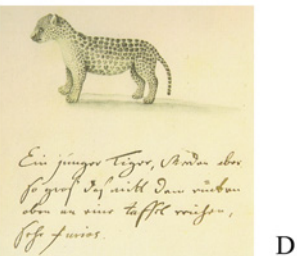 Ein junger Tiger, Werden aber
so groß daß mitt dem rücken
oben an eine taffel reichen,
sehr furios.
D